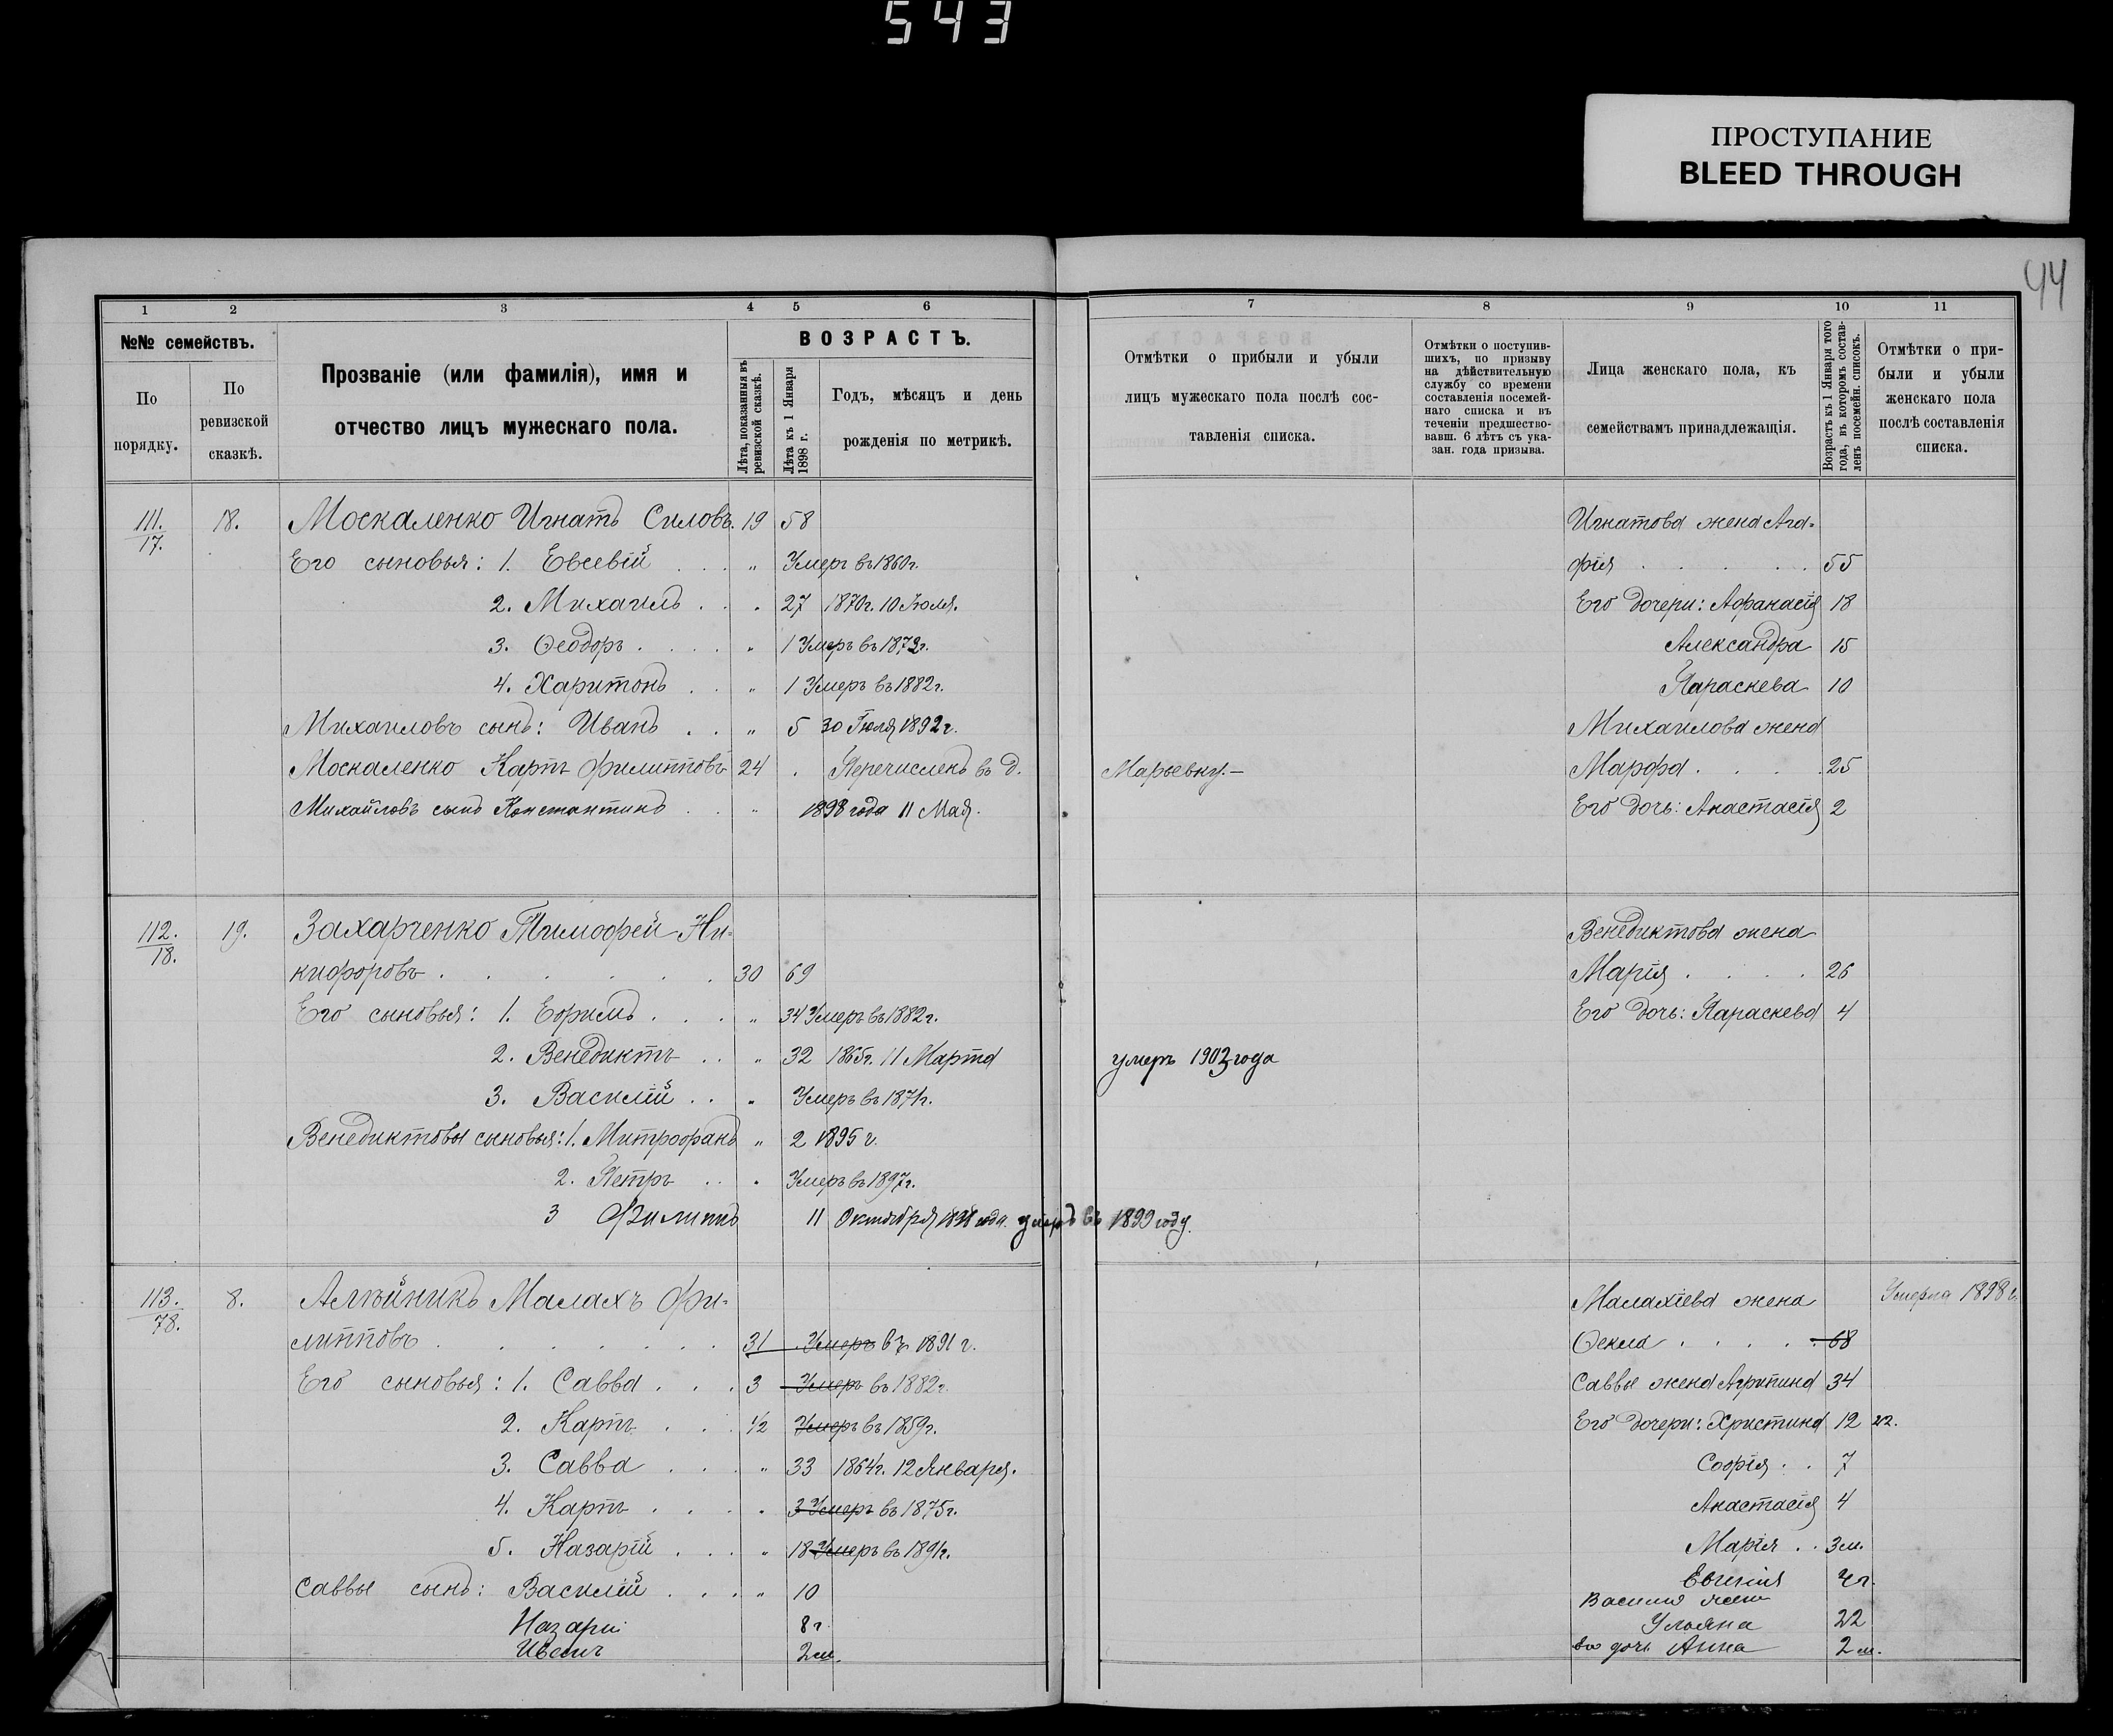 543
ПРОСТУПАНИЕ
BLEED THROUGH
44
1 2 3 4 5 6 7 8 9 10 11
№№ семействъ.
По порядку.
По ревизской сказкѣ.
Прозваніе (или фамилія), имя и
отчество лицъ мужескаго пола.
ВОЗРАСТЪ.
Лѣта, показанныя въ ревизской сказкѣ.
Лѣта къ 1 Января 1898 г.
Годъ, мѣсяцъ и день
рожденія по метрикѣ.
Отмѣтки о прибыли и убыли
лицъ мужескаго пола послѣ сос-
тавленія списка.
Отмѣтки о поступив-
шихъ, по призыву
на дѣйствительную
службу со времени
составленія посемей-
наго списка и въ
теченіи предшество-
вавш. 6 лѣтъ съ ука-
зан. года призыва.
Лица женскаго пола, къ
семействамъ принадлежащія.
Возрастъ къ 1 Января того
года, въ которомъ состав-
ленъ посемейн. списокъ.
Отмѣтки о при-
были и убыли
женскаго пола
послѣ составленія
списка.
111. 18. Москаленко Игнатъ Силовъ. 19 58 Игнатова жена Ага-
17.
Его сыновья: 1. Евсевій " Умеръ въ 1860 г. фія 55
2. Михаилъ 27 1870 г. 10 Іюля. Его дочери: Афанасія 18
3. Ѳеодоръ " 1 Умеръ въ 1872 г. Александра 15
4. Харитонъ " 1 Умеръ въ 1882 г. Параскева 10
Михаиловъ сынъ: Иванъ " 5 30 Іюля 1892 г. Михаилова жена
Москаленко Карпъ Филипповъ 24 Перечисленъ въ д. Марьевку.— Марфа 25
Михайловъ сынъ Константинъ " 1898 года 11 Мая. Его дочь: Анастасія 2
112. 19. Захарченко Тимофей Ни- Венедиктова жена
18.
кифоровъ 30 69 Марія 26
Его сыновья: 1. Ефимъ " 34 Умеръ въ 1882 г. Его дочь: Параскева 4
2. Венедиктъ " 32 1865 г. 11 Марта умеръ 1903 года
3. Василій " Умеръ въ 1871 г.
Венедиктовы сыновья: 1. Митрофанъ " 2 1895 г.
2. Петръ Умеръ въ 1897 г.
3 Филиппъ 11 Октября 1898 года. умеръ въ 1899 году.
113. 8. Алейникъ Малахъ Фи- Малахіева жена Умерла 1898 г.
78.
липповъ 31 Умеръ въ 1891 г. Ѳекла 68
Его сыновья: 1. Савва 3 Умеръ въ 1882 г. Саввы жена Агрипина 34
2. Карпъ 1/2 Умеръ въ 1859 г. Его дочери: Христина 12 22.
3. Савва " 33 1864 г. 12 Января. Софія 7
4. Карпъ 3 Умеръ въ 1875 г. Анастасія 4
5. Назарій " 18 Умеръ въ 1891 г. Марія 3 м.
Саввы сынъ: Василій " 10 Евгенія
Назарій 8 г. Ульяна 22
2 м. дочь Анна 2 м.